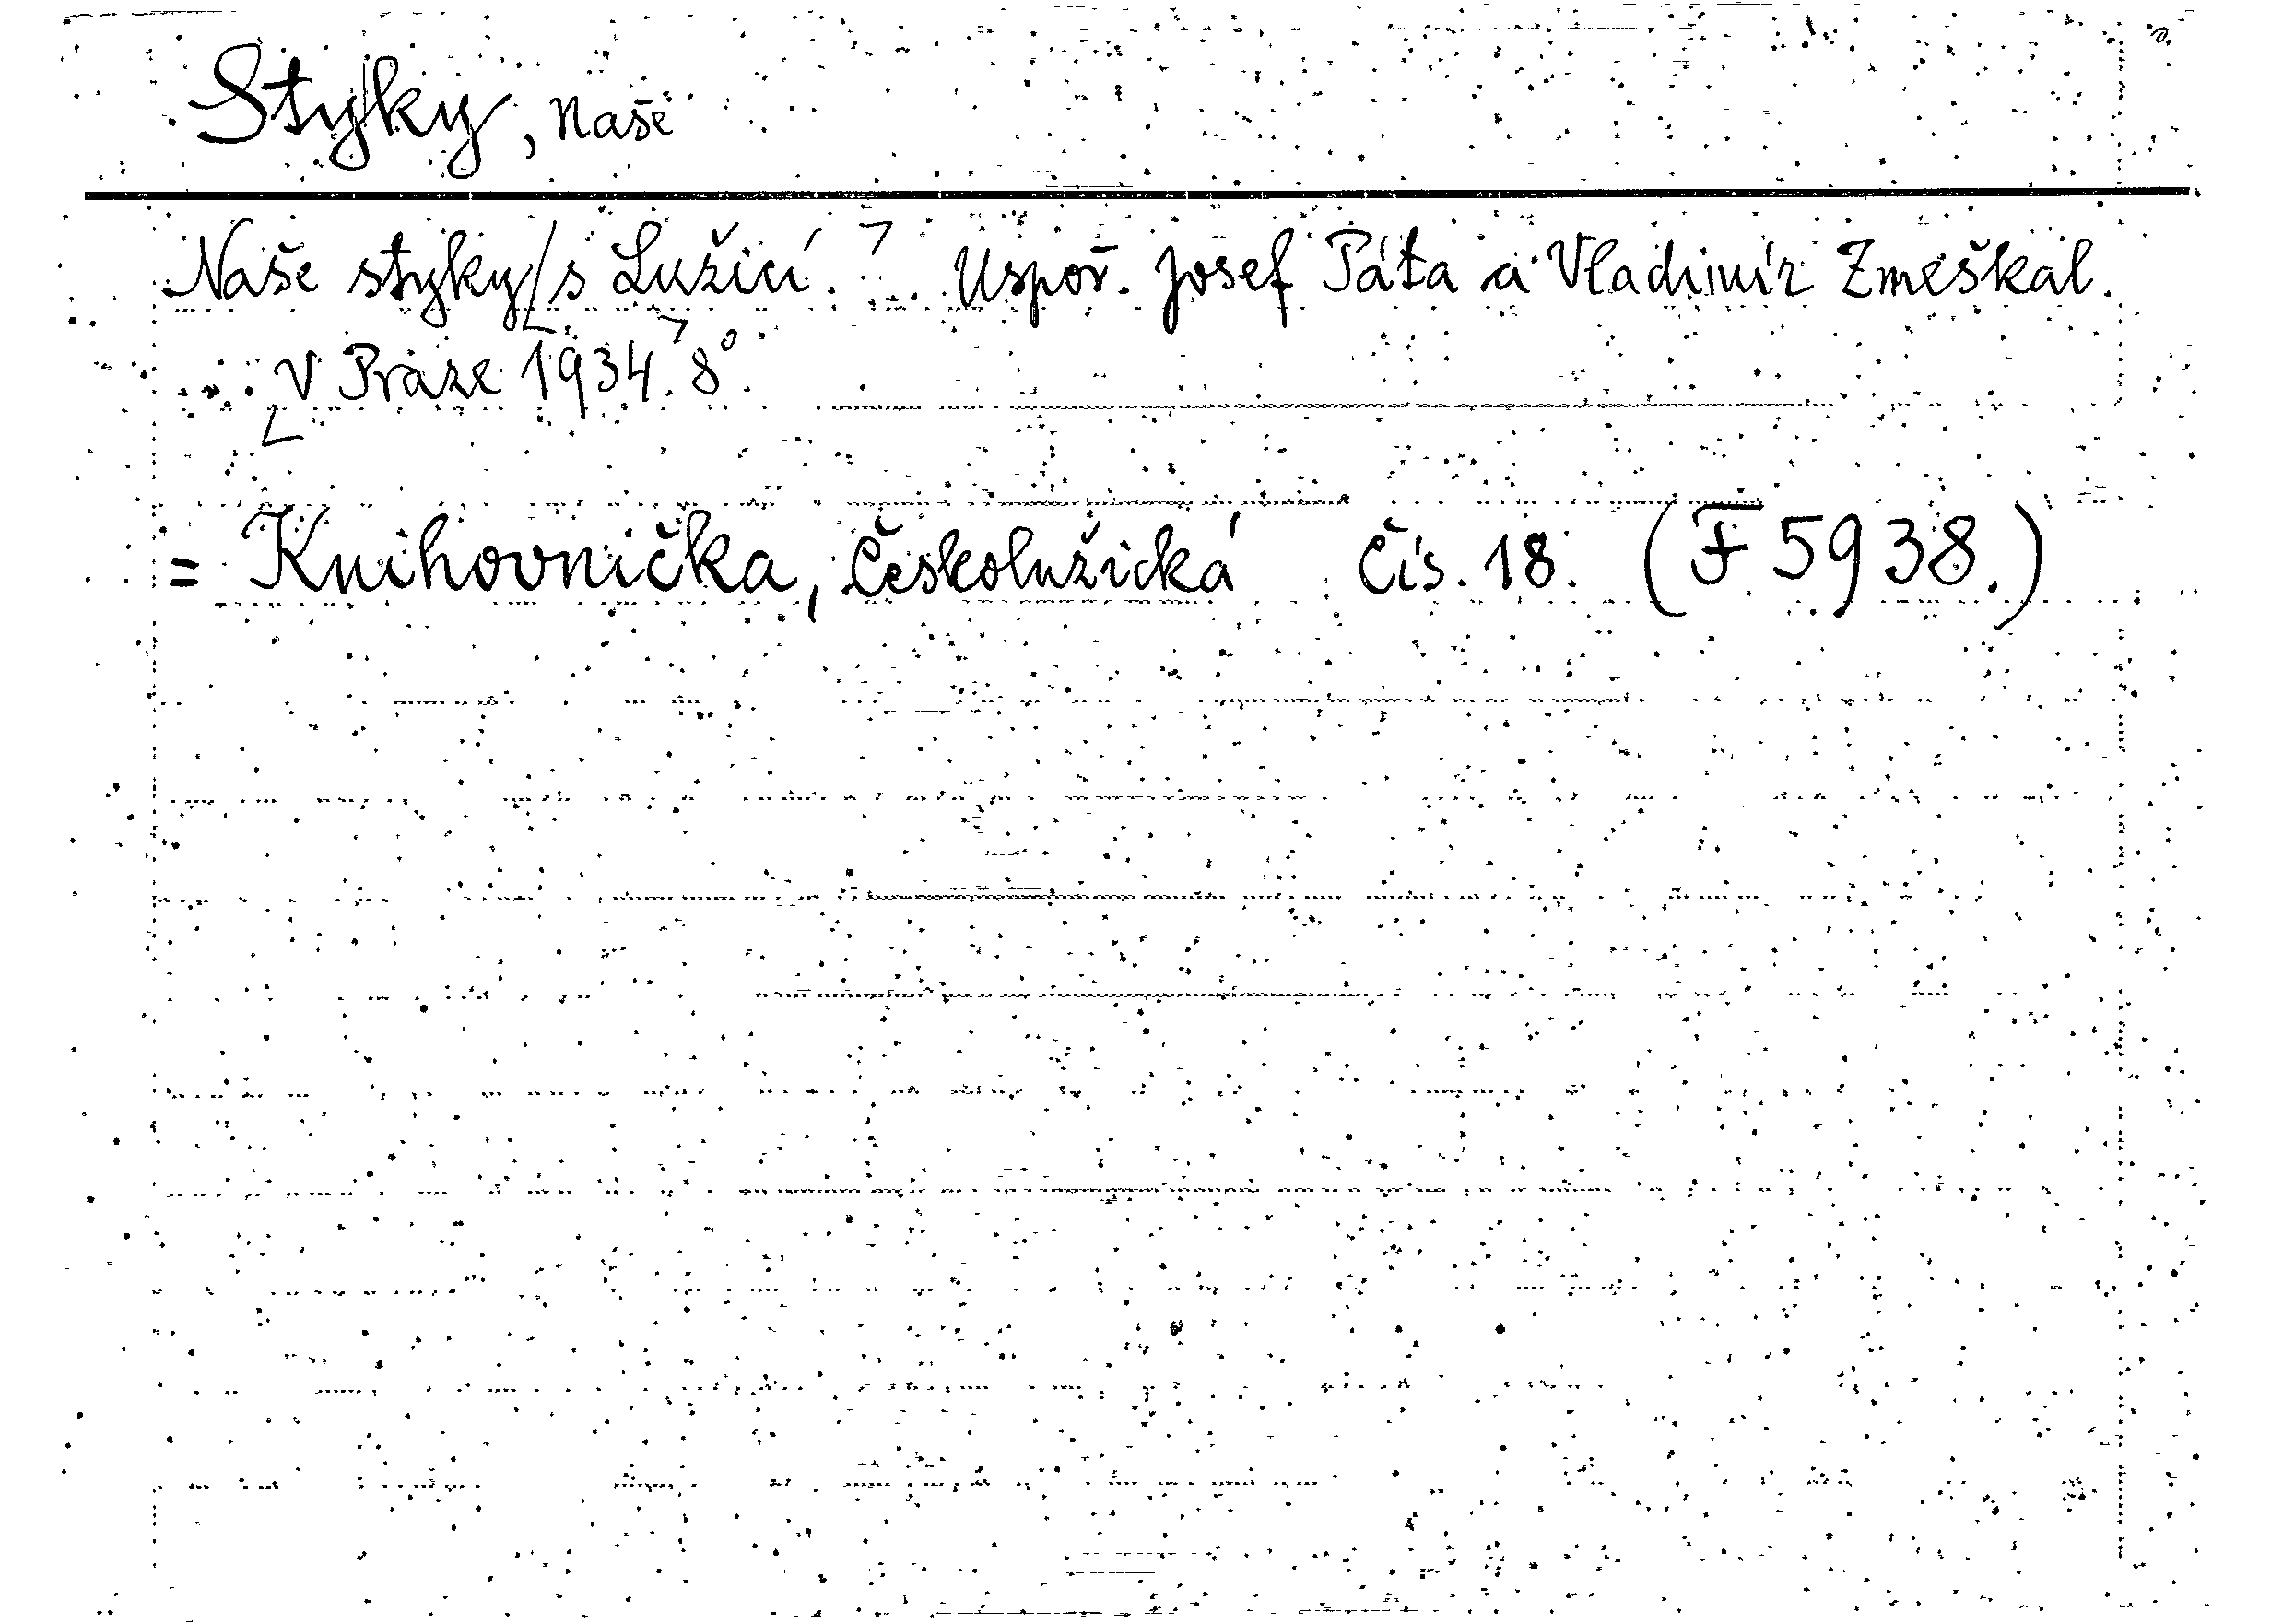 Styky, Naše
Naše styky s Lužicí. Uspoř. Josef Páta a Vladimír Zmeškal.
V Praze 1934. 8°.
= Knihovnička, Českolužická Čís. 18. (F 5938.)